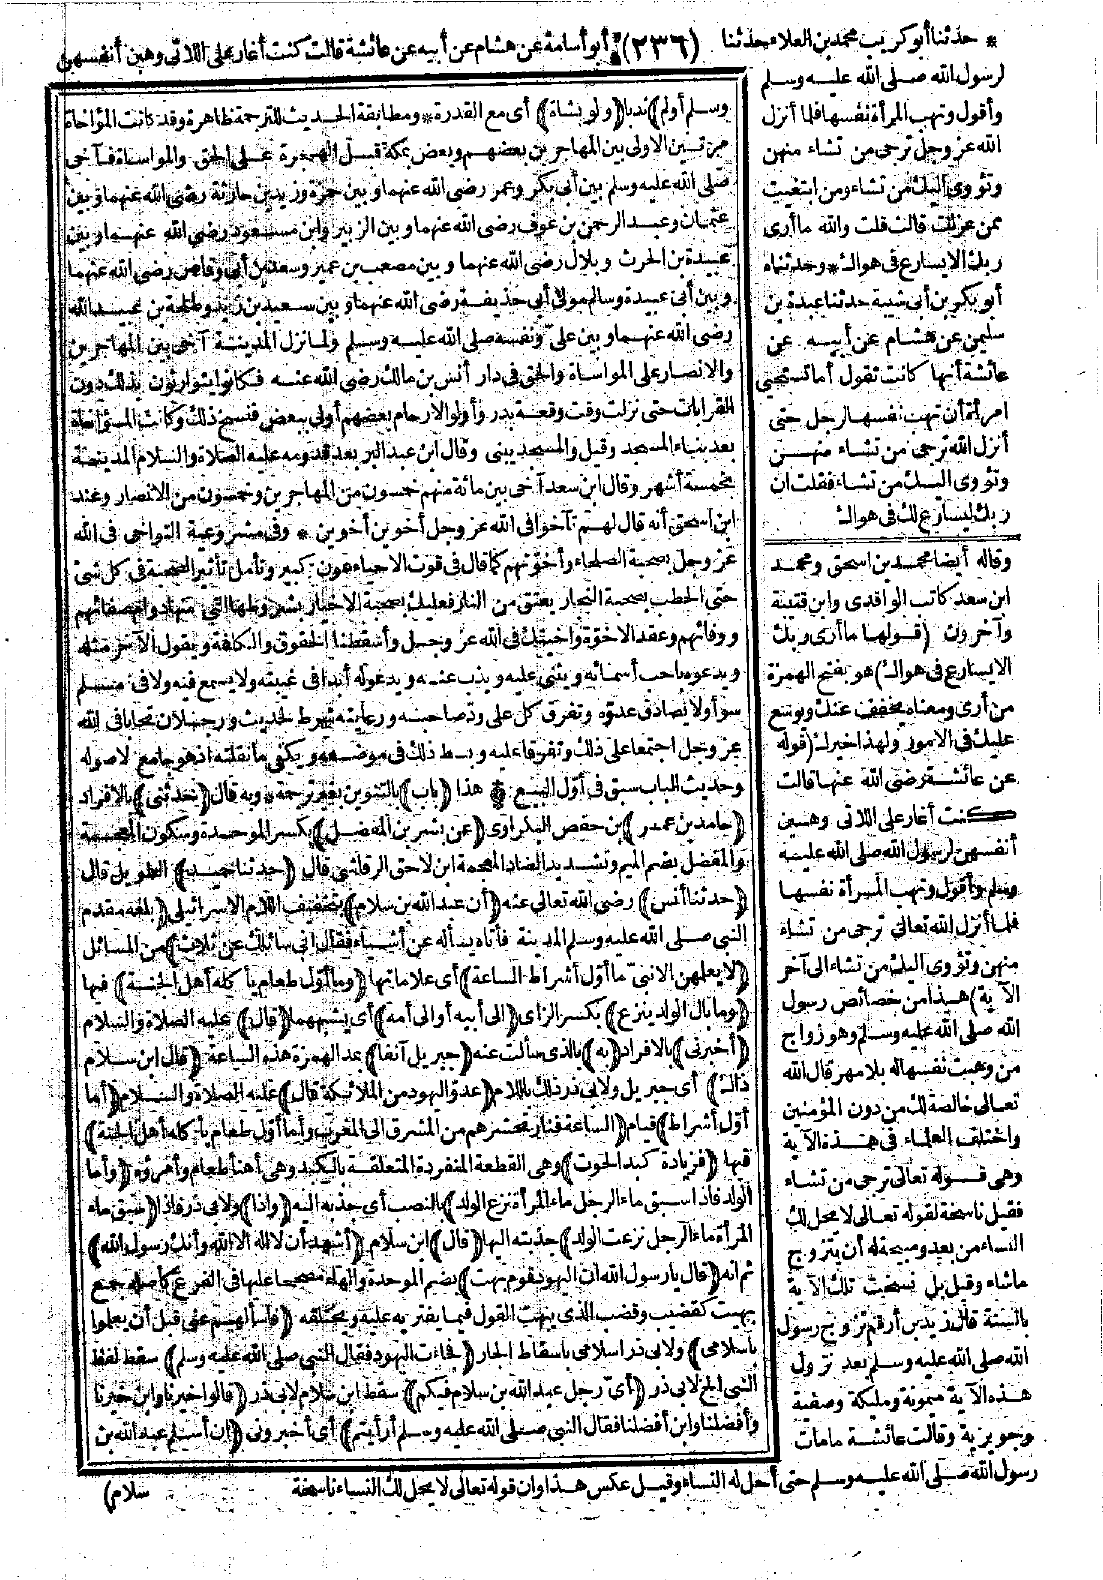 * حدثنا أبو كريب محمد بن العلاء حدثنا (٢٣٦) أبو أسامة عن هشام عن أبيه عن عائشة قالت كنت أغار على اللاتي وهبن أنفسهن
لرسول الله صلى الله عليه وسلم
وأقول وتهب المرأة نفسها فلما أنزل
الله عز وجل ترجى من تشاء منهن
وتؤوى اليك من تشاء ومن ابتغيت
ممن عزلت قالت قلت والله ما أرى
ربك الا يسارع في هواك * وحدثناه
أبو بكر بن أبي شيبة حدثنا عبدة بن
سليمن عن هشام عن أبيه عن
عائشة أنها كانت تقول أما تستحيى
امرأة أن تهب نفسها لرجل حتى
أنزل الله ترجى من تشاء منهن
وتؤوى اليك من تشاء فقلت ان
ربك ليسارع لك في هواك
وقاله أيضا محمد بن اسحق ومحمد
ابن سعد كاتب الواقدى وابن قتيبة
وآخرون (قولها ما أرى ربك
الا يسارع في هواك) هو بفتح الهمزة
من أرى ومعناه يخفف عنك ويوسع
عليك في الامور ولهذا خيرك (قوله
عن عائشة رضى الله عنها قالت
كنت أغار على اللاتى وهبن
أنفسهن لرسول الله صلى الله عليه
وسلم وأقول وتهب المرأة نفسها
فلما أنزل الله تعالى ترجى من تشاء
منهن وتؤوى اليك من تشاء الى آخر
الآية) هذا من خصائص رسول
الله صلى الله عليه وسلم وهو زواج
من وهبت نفسها له بلا مهر قال الله
تعالى خالصة لك من دون المؤمنين
واختلف العلماء في هذه الآية
وهى قوله تعالى ترجى من تشاء
فقيل ناسخة لقوله تعالى لا يحل لك
النساء من بعد ومبيحة له أن يتزوج
ما شاء وقيل بل نسخت تلك الآية
بالسنة قال زيد بن أرقم تزوج رسول
الله صلى الله عليه وسلم بعد نزول
هذه الآية ميمونة ومليكة وصفية
وجويرية وقالت عائشة ما مات
رسول الله صلى الله عليه وسلم حتى أحل له النساء وقيل عكس هذا وان قوله تعالى لا يحل لك النساء ناسخة
وسلم أولم) ندبا (ولو بشاة) أى مع القدرة * ومطابقة الحديث للترجمة ظاهرة وقد كانت المؤاخاة
مرتين الاولى بين المهاجرين بعضهم وبعض بمكة قبل الهجرة على الحق والمواساة فآخى
صلى الله عليه وسلم بين أبى بكر وعمر رضى الله عنهما وبين حمزة وزيد بن حارثة رضى الله عنهما وبين
عثمان وعبد الرحمن بن عوف رضى الله عنهما وبين الزبير وابن مسعود رضى الله عنهما وبين
عبيدة بن الحرث وبلال رضى الله عنهما وبين مصعب بن عمير وسعد بن أبى وقاص رضى الله عنهما
وبين أبى عبيدة وسالم مولى أبى حذيفة رضى الله عنهما وبين سعيد بن زيد وطلحة بن عبيد الله
رضى الله عنهما وبين على ونفسه صلى الله عليه وسلم ولما نزل المدينة آخى بين المهاجرين
والانصار على المواساة والحق في دار أنس بن مالك رضى الله عنه فكانوا يتوارثون بذلك دون
القرابات حتى نزلت وقت وقعة بدر وأولو الارحام بعضهم أولى ببعض فنسخ ذلك وكانت المؤاخاة
بعد بناء المسجد وقيل والمسجد يبنى وقال ابن عبد البر بعد قدومه عليه الصلاة والسلام المدينة
بخمسة أشهر وقال ابن سعد آخى بين مائة منهم خمسون من المهاجرين وخمسون من الانصار وعند
ابن اسحق أنه قال لهم تآخوا في الله عز وجل أخوين أخوين * وفى مشروعية التواخى في الله
عز وجل بصحبة الصلحاء وأخوتهم كما قال في قوت الاحياء عون كبير وتأمل تأثير الصحبة في كل شئ
حتى الحطب بصحبة النجار يعتق من النار فعليك بصحبة الاخيار بشروطها التى منها دوام صفائهم
ووفائهم وعقد الاخوة واخيتك في الله عز وجل وأسقطنا الحقوق والكلفة ويقول الآخر مثله
ويدعوه باحب أسمائه ويثنى عليه ويذب عنه ويدعو له أبدا في غيبته ولا يسمع فيه ولا في مسلم
سوأ ولا يصادق عدوه وتفرق كل على ود صاحبه ورعايته شرط الحديث ورجلان تحابا في الله
عز وجل اجتمعا على ذلك وتفرقا عليه وبسط ذلك في موضعه ويكفى ما نقلته اذ هو جامع لاصوله
وحديث الباب سبق في أول البيع * هذا (باب) بالتنوين بغير ترجمة * وبه قال (حدثنى) بالافراد
(حامد بن عمر) بن حفص البكراوى (عن بشر بن المفضل) بكسر الموحدة وسكون المعجمة
والمفضل بضم الميم وتشديد الضاد المعجمة ابن لاحق الرقاشى قال (حدثنا حميد) الطويل قال
(حدثنا أنس) رضى الله تعالى عنه (أن عبد الله بن سلام) بتخفيف اللام الاسرائيلى (بلغه مقدم
النبى صلى الله عليه وسلم المدينة فأتاه يسأله عن أشياء فقال انى سائلك عن ثلاث) من المسائل
(لا يعلمهن الا نبى ما أول أشراط الساعة) أى علاماتها (وما أول طعام يأكله أهل الجنة) فيها
(وما بال الولد ينزع) بكسر الزاى (الى أبيه أو الى أمه) أى يشبههما (قال) عليه الصلاة والسلام
(أخبرنى) بالافراد (به) بالذى سألت عنه (جبريل آنفا) بمد الهمزة هذه الساعة (قال ابن سلام
ذاك) أى جبريل ولابى ذر ذلك باللام (عدو اليهود من الملائكة قال) عليه الصلاة والسلام (أما
أول أشراط) قيام (الساعة فنار تحشرهم من المشرق الى المغرب وأما أول طعام يأكله أهل الجنة)
فيها (فزيادة كبد الحوت) وهى القطعة المنفردة المتعلقة بالكبد وهى أهنأ طعام وأمرؤه (وأما
الولد فاذا سبق ماء الرجل ماء المرأة نزع الولد) بالنصب أى جذبه اليه (واذا) ولابى ذر فاذا (سبق ماء
المرأة ماء الرجل نزعت الولد) جذبته اليها (قال) ابن سلام (أشهد أن لا اله الا الله وأنك رسول الله)
ثم انه (قال يا رسول الله ان اليهود قوم بهت) بضم الموحدة والهاء مصححا عليها في الفرع كأصله جمع
بهيت كقضيب وقضب الذى يبهت القول فيما يفتريه عليه ويختلقه (فاسألهم عنى قبل أن يعلموا
باسلامى) ولابى ذر اسلامى باسقاط الجار (فجاءت اليهود فقال النبى صلى الله عليه وسلم) سقط لفظ
النبى الخ لابى ذر (أى رجل عبد الله بن سلام فيكم) سقط ابن سلام لابى ذر (قالوا خيرنا وابن خيرنا
وأفضلنا وابن أفضلنا فقال النبى صلى الله عليه وسلم أرأيتم) أى أخبرونى (ان أسلم عبد الله بن
سلام)